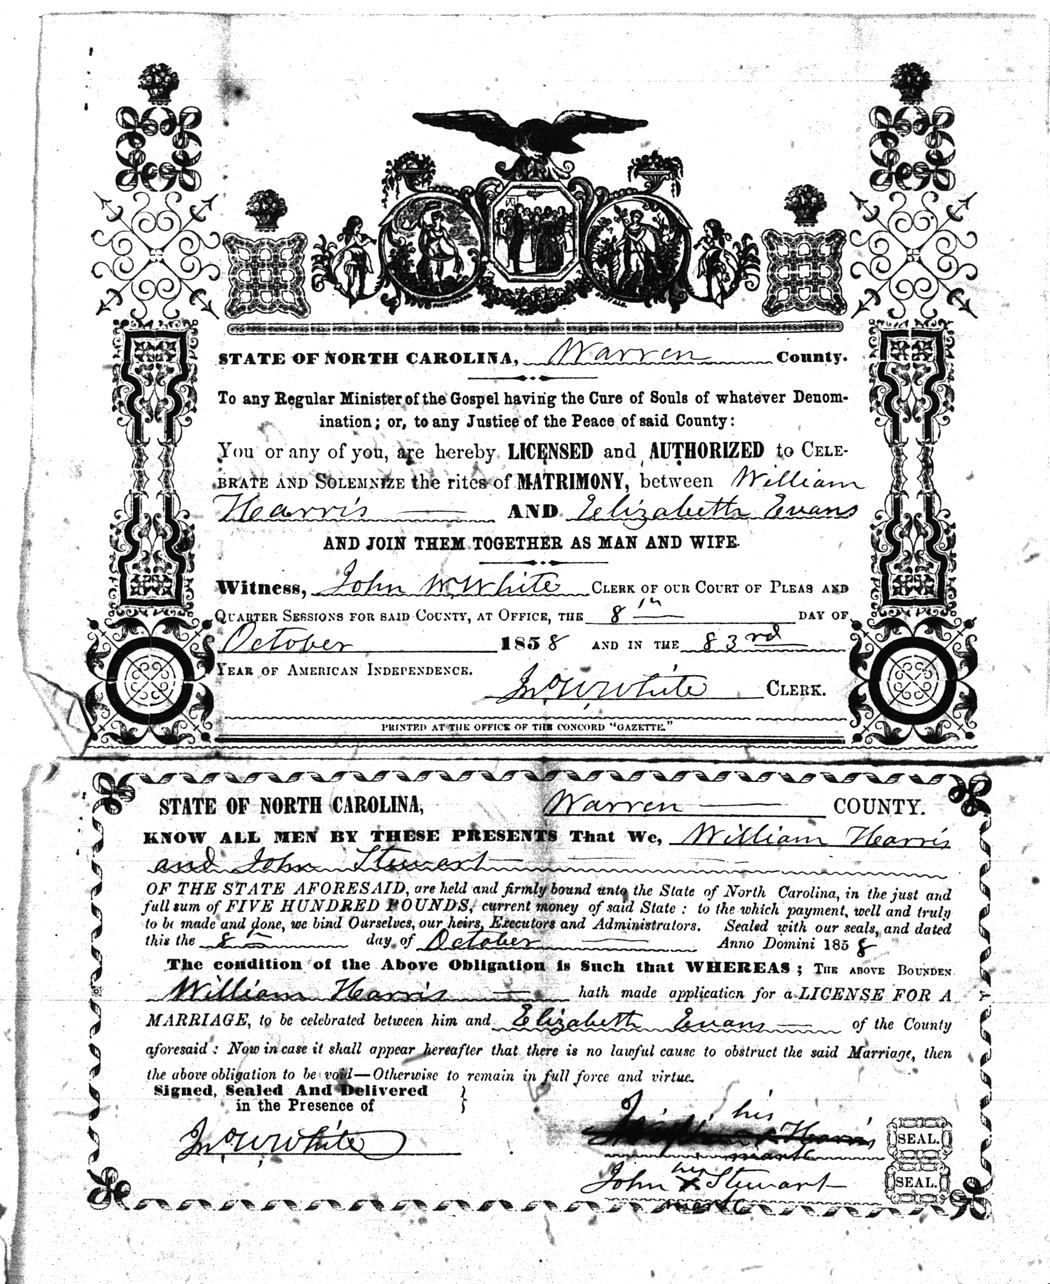 STATE OF NORTH CAROLINA, Warren County.
To any Regular Minister of the Gospel having the Cure of Souls of whatever Denom-
ination; or, to any Justice of the Peace of said County:
You or any of you, are hereby LICENSED and AUTHORIZED to CELE-
BRATE AND SOLEMNIZE the rites of MATRIMONY, between William
Harris AND Elizabeth Evans
AND JOIN THEM TOGETHER AS MAN AND WIFE.
Witness, John W. White CLERK OF OUR COURT OF PLEAS AND
QUARTER SESSIONS FOR SAID COUNTY, AT OFFICE, THE 8th DAY OF
October 1858 AND IN THE 83rd
YEAR OF AMERICAN INDEPENDENCE.
Jno W. White CLERK.
PRINTED AT THE OFFICE OF THE CONCORD "GAZETTE."
STATE OF NORTH CAROLINA, Warren COUNTY.
KNOW ALL MEN BY THESE PRESENTS That We, William Harris
and John Stewart
OF THE STATE AFORESAID, are held and firmly bound unto the State of North Carolina, in the just and
full sum of FIVE HUNDRED POUNDS, current money of said State: to the which payment, well and truly
to be made and done, we bind Ourselves, our heirs, Executors and Administrators. Sealed with our seals, and dated
this the 8 day of October Anno Domini 1858
The condition of the Above Obligation is Such that WHEREAS; THE ABOVE BOUNDEN
William Harris hath made application for a LICENSE FOR A
MARRIAGE, to be celebrated between him and Elizabeth Evans of the County
aforesaid: Now in case it shall appear hereafter that there is no lawful cause to obstruct the said Marriage, then
the above obligation to be void—Otherwise to remain in full force and virtue.
Signed, Sealed And Delivered
in the Presence of
Jno W. White
his
Harris SEAL.
mark
his
John X Stewart SEAL.
mark